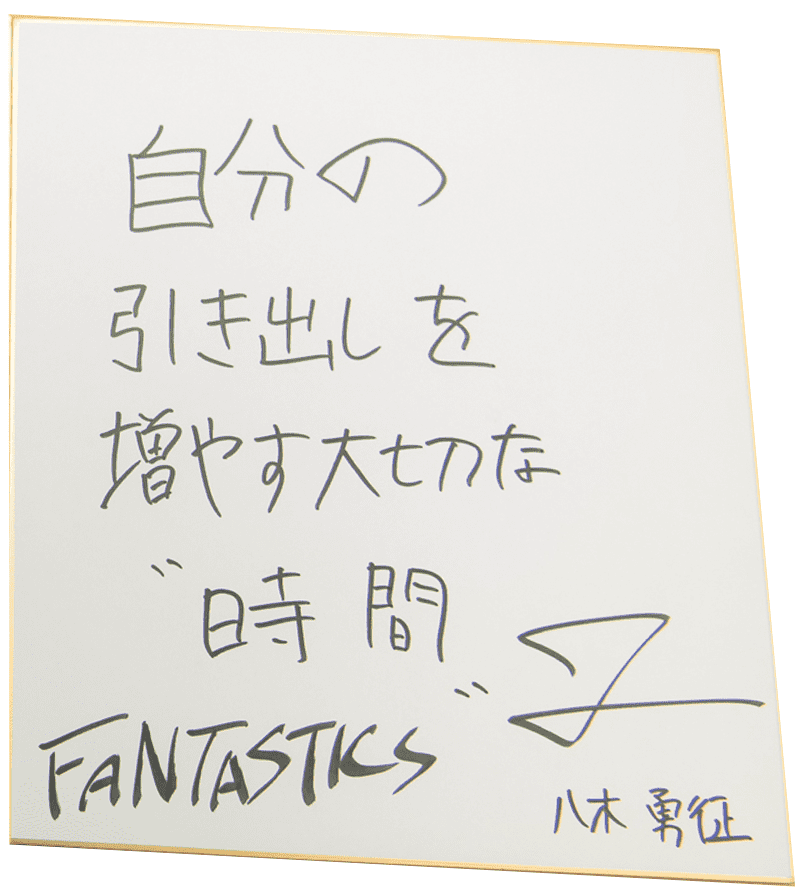 自分の
引き出しを
増やす大切な
〝時間〟
FANTASTICS
八木 勇征